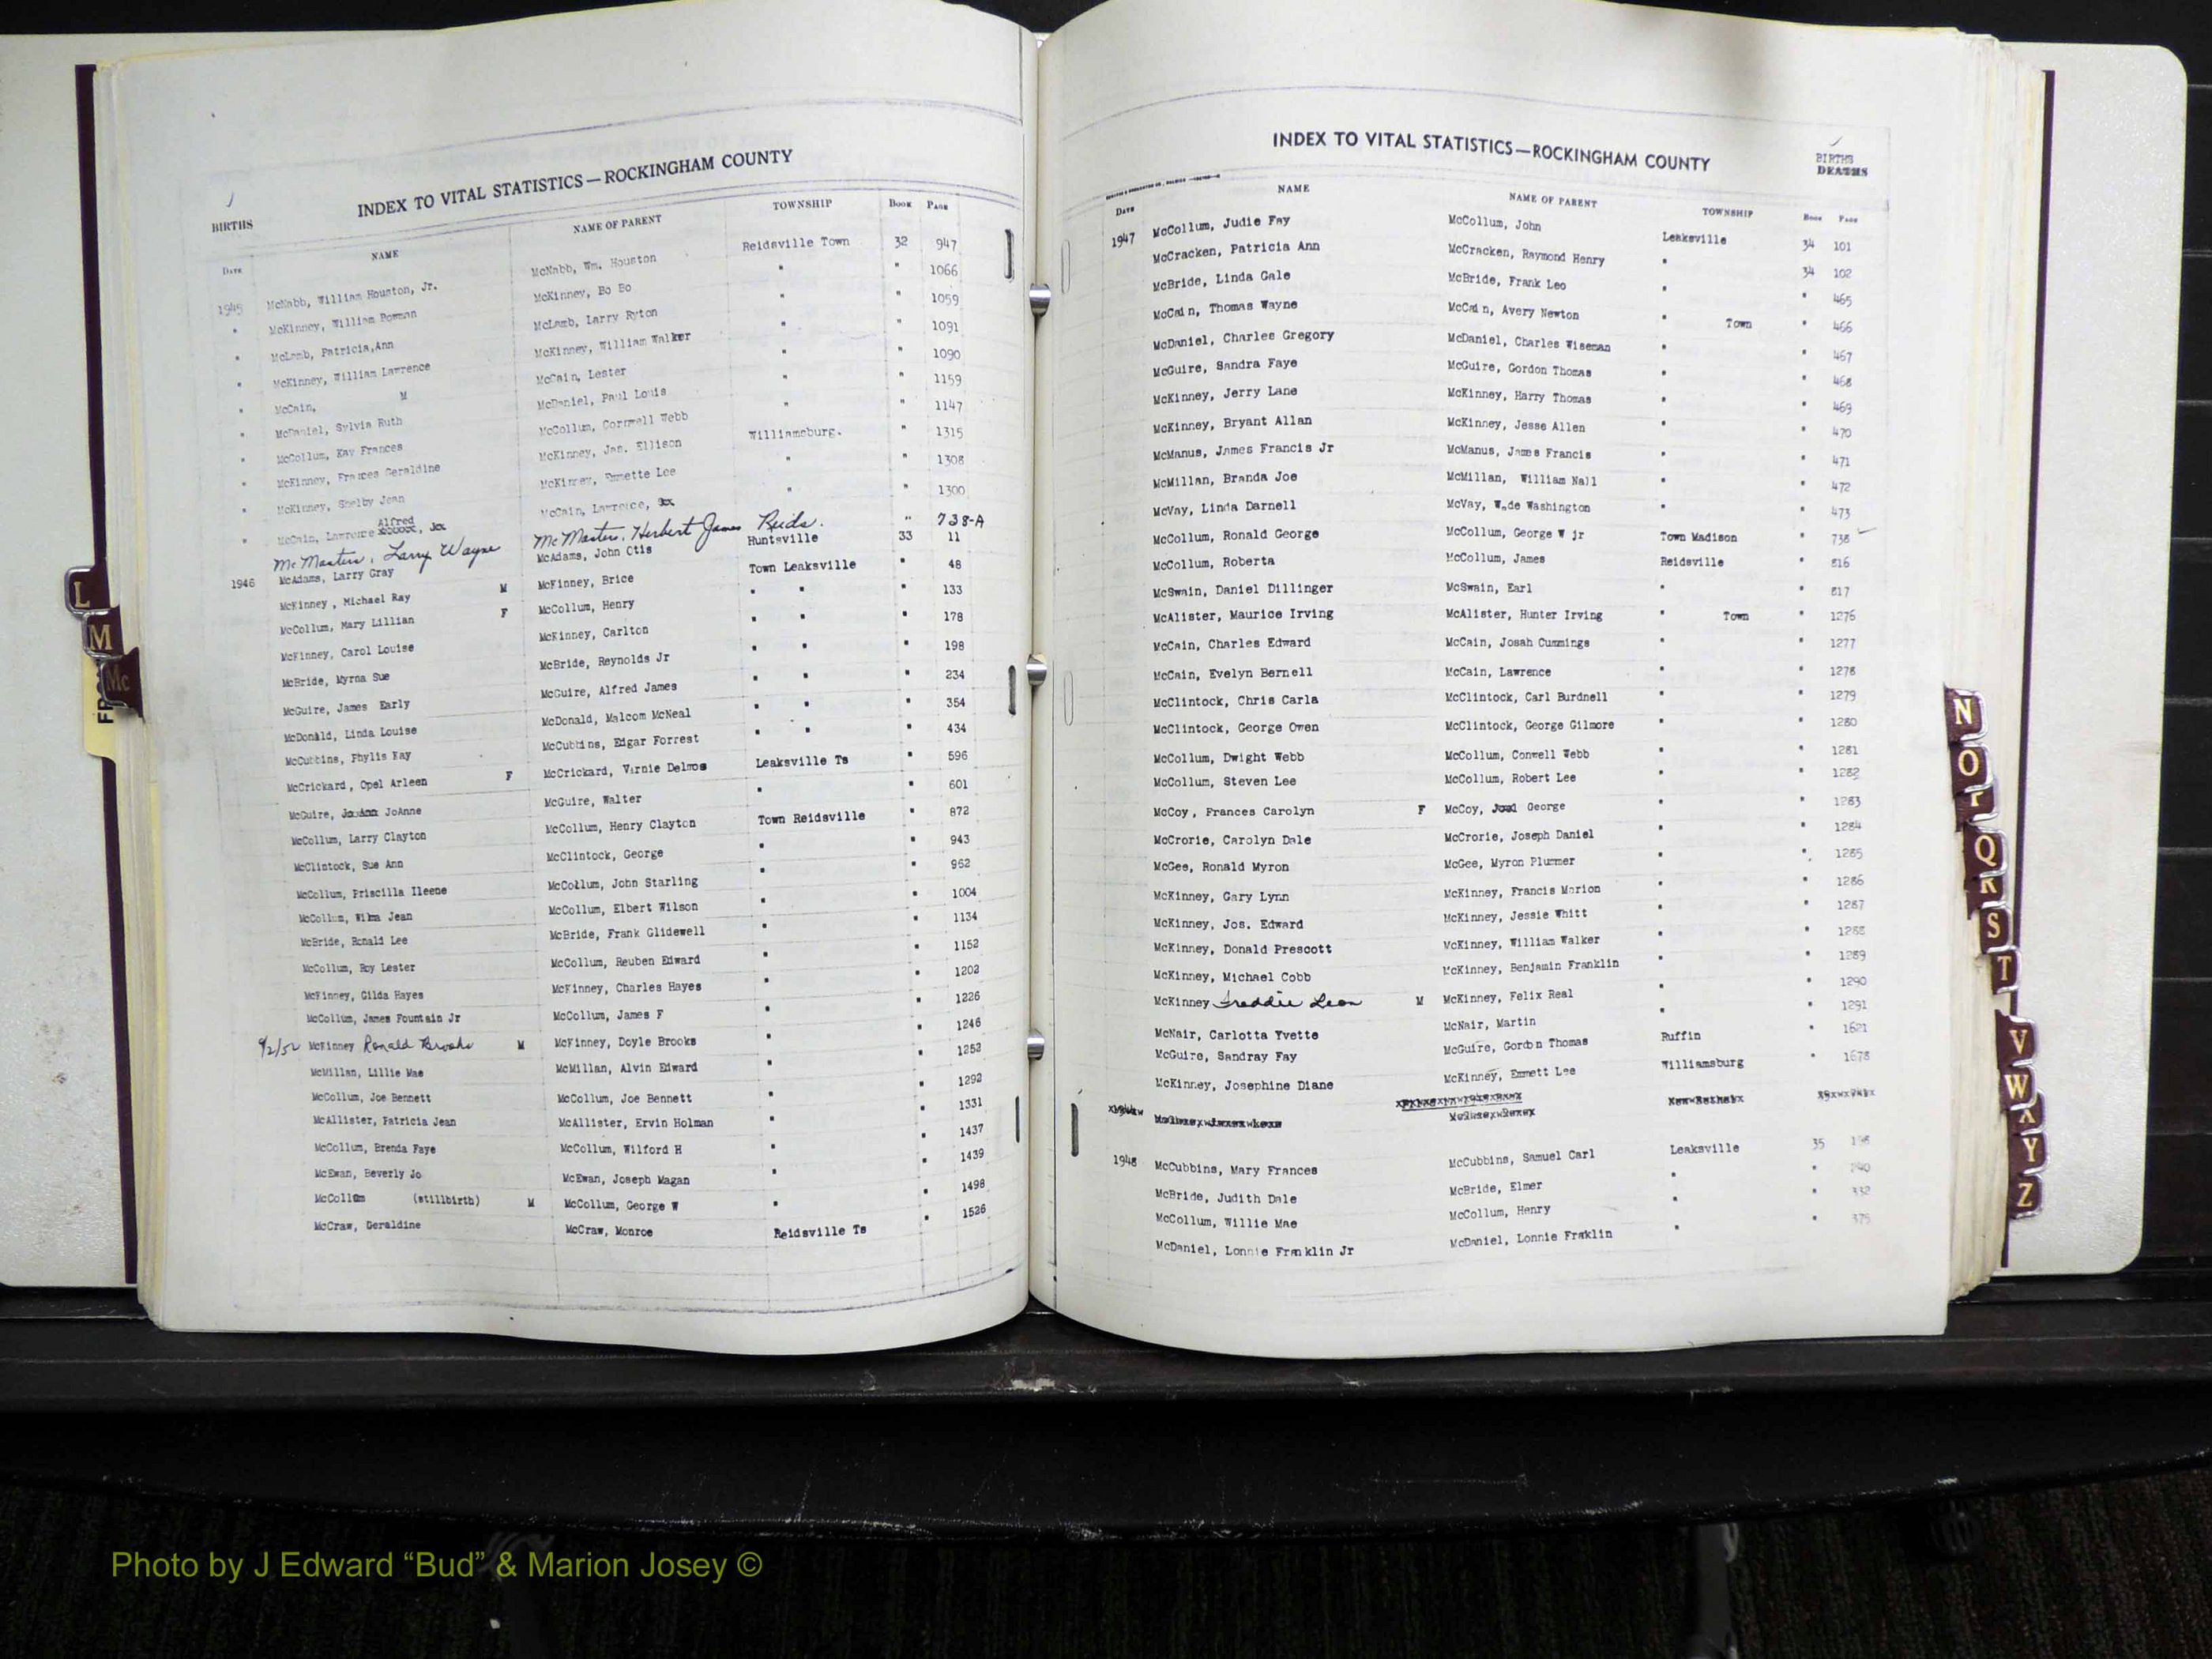 BIRTHS
INDEX TO VITAL STATISTICS—ROCKINGHAM COUNTY
DATE NAME NAME OF PARENT TOWNSHIP BOOK PAGE
1945 McNabb, William Houston, Jr. McNabb, Wm. Houston Reidsville Town 32 947
" McKinney, William Bowman McKinney, Bo Bo " " 1066
" McLamb, Patricia,Ann McLamb, Larry Ryton " " 1059
" McKinney, William Lawrence McKinney, William Walker " " 1091
" McCain, M McCain, Lester " " 1090
" McDaniel, Sylvia Ruth McDaniel, Paul Louis " " 1159
" McCollum, Kay Frances McCollum, Cornwell Webb " " 1147
" McKinney, Frances Geraldine McKinney, Jas. Ellison Williamsburg. " 1315
" McKinney, Shelby Jean McKinney, Emmette Lee " " 1308
" McCain, Lawrence Alfred McCain, Lawrence, " " 1300
McMasters, Larry Wayne McMasters, Herbert James Reids. " 738-A
1946 McAdams, Larry Gray McAdams, John Otis Huntsville 33 11
McKinney , Michael Ray M McKinney, Brice Town Leaksville " 48
McCollum, Mary Lillian F McCollum, Henry " " " 133
McKinney, Carol Louise McKinney, Carlton " " " 178
McBride, Myrna Sue McBride, Reynolds Jr " " " 198
McGuire, James Early McGuire, Alfred James " " " 234
McDonald, Linda Louise McDonald, Malcom McNeal " " " 354
McCubbins, Phylis Kay McCubbins, Edgar Forrest " " " 434
McCrickard, Opel Arleen F McCrickard, Virnie Delmos Leaksville Ts " 596
McGuire, JoAnne McGuire, Walter " " 601
McCollum, Larry Clayton McCollum, Henry Clayton Town Reidsville " 872
McClintock, Sue Ann McClintock, George " " 943
McCollum, Priscilla Ileene McCollum, John Starling " " 952
McCollum, Wilma Jean McCollum, Elbert Wilson " " 1004
McBride, Ronald Lee McBride, Frank Glidewell " " 1134
McCollum, Roy Lester McCollum, Reuben Edward " " 1152
McKinney, Gilda Hayes McKinney, Charles Hayes " " 1202
McCollum, James Fountain Jr McCollum, James F " " 1226
9/2/52 McKinney Ronald Brooks M McKinney, Doyle Brooks " " 1246
McMillan, Lillie Mae McMillan, Alvin Edward " " 1252
McCollum, Joe Bennett McCollum, Joe Bennett " " 1292
McAllister, Patricia Jean McAllister, Ervin Holman " " 1331
McCollum, Brenda Faye McCollum, Wilford H " " 1437
McEwan, Beverly Jo McEwan, Joseph Magan " 1439
McCollum (stillbirth) M McCollum, George W " " 1498
McCraw, Geraldine McCraw, Monroe Reidsville Ts " 1526
INDEX TO VITAL STATISTICS—ROCKINGHAM COUNTY
BIRTHS
DEATHS
DATE NAME NAME OF PARENT TOWNSHIP BOOK PAGE
1947 McCollum, Judie Fay McCollum, John Leaksville 34 101
McCracken, Patricia Ann McCracken, Raymond Henry " 34 102
McBride, Linda Gale McBride, Frank Leo " " 465
McCain, Thomas Wayne McCain, Avery Newton " Town " 466
McDaniel, Charles Gregory McDaniel, Charles Wiseman " " 467
McGuire, Sandra Faye McGuire, Gordon Thomas " " 468
McKinney, Jerry Lane McKinney, Harry Thomas " " 469
McKinney, Bryant Allan McKinney, Jesse Allen " " 470
McManus, James Francis Jr McManus, James Francis " " 471
McMillan, Branda Joe McMillan, William Nall " " 472
McVay, Linda Darnell McVay, Wade Washington " " 473
McCollum, Ronald George McCollum, George W jr Town Madison " 738
McCollum, Roberta McCollum, James Reidsville " 816
McSwain, Daniel Dillinger McSwain, Earl " " 817
McAlister, Maurice Irving McAlister, Hunter Irving " Town " 1276
McCain, Charles Edward McCain, Josah Cummings " " 1277
McCain, Evelyn Bernell McCain, Lawrence " " 1278
McClintock, Chris Carla McClintock, Carl Burdnell " " 1279
McClintock, George Owen McClintock, George Gilmore " " 1280
McCollum, Dwight Webb McCollum, Conwell Webb " " 1281
McCollum, Steven Lee McCollum, Robert Lee " " 1282
McCoy, Frances Carolyn F McCoy, George " " 1283
McCrorie, Carolyn Dale McCrorie, Joseph Daniel " " 1284
McGee, Ronald Myron McGee, Myron Plummer " " 1285
McKinney, Gary Lynn McKinney, Francis Marion " " 1286
McKinney, Jos. Edward McKinney, Jessie Whitt " " 1287
McKinney, Donald Prescott McKinney, William Walker " " 1288
McKinney, Michael Cobb McKinney, Benjamin Franklin " " 1289
McKinney Freddie Leon M McKinney, Felix Real " " 1290
McNair, Carlotta Yvette McNair, Martin " " 1291
McGuire, Sandray Fay McGuire, Gordon Thomas Ruffin " 1621
McKinney, Josephine Diane McKinney, Emmett Lee Williamsburg " 1678
1948 McCubbins, Mary Frances McCubbins, Samuel Carl Leaksville 35
McBride, Judith Dale McBride, Elmer " "
McCollum, Willie Mae McCollum, Henry " " 332
McDaniel, Lonnie Franklin Jr McDaniel, Lonnie Franklin " " 375
L
M
Mc
N
O
Q
R
S
T
V
W
X
Y
Z
Photo by J Edward “Bud” & Marion Josey ©